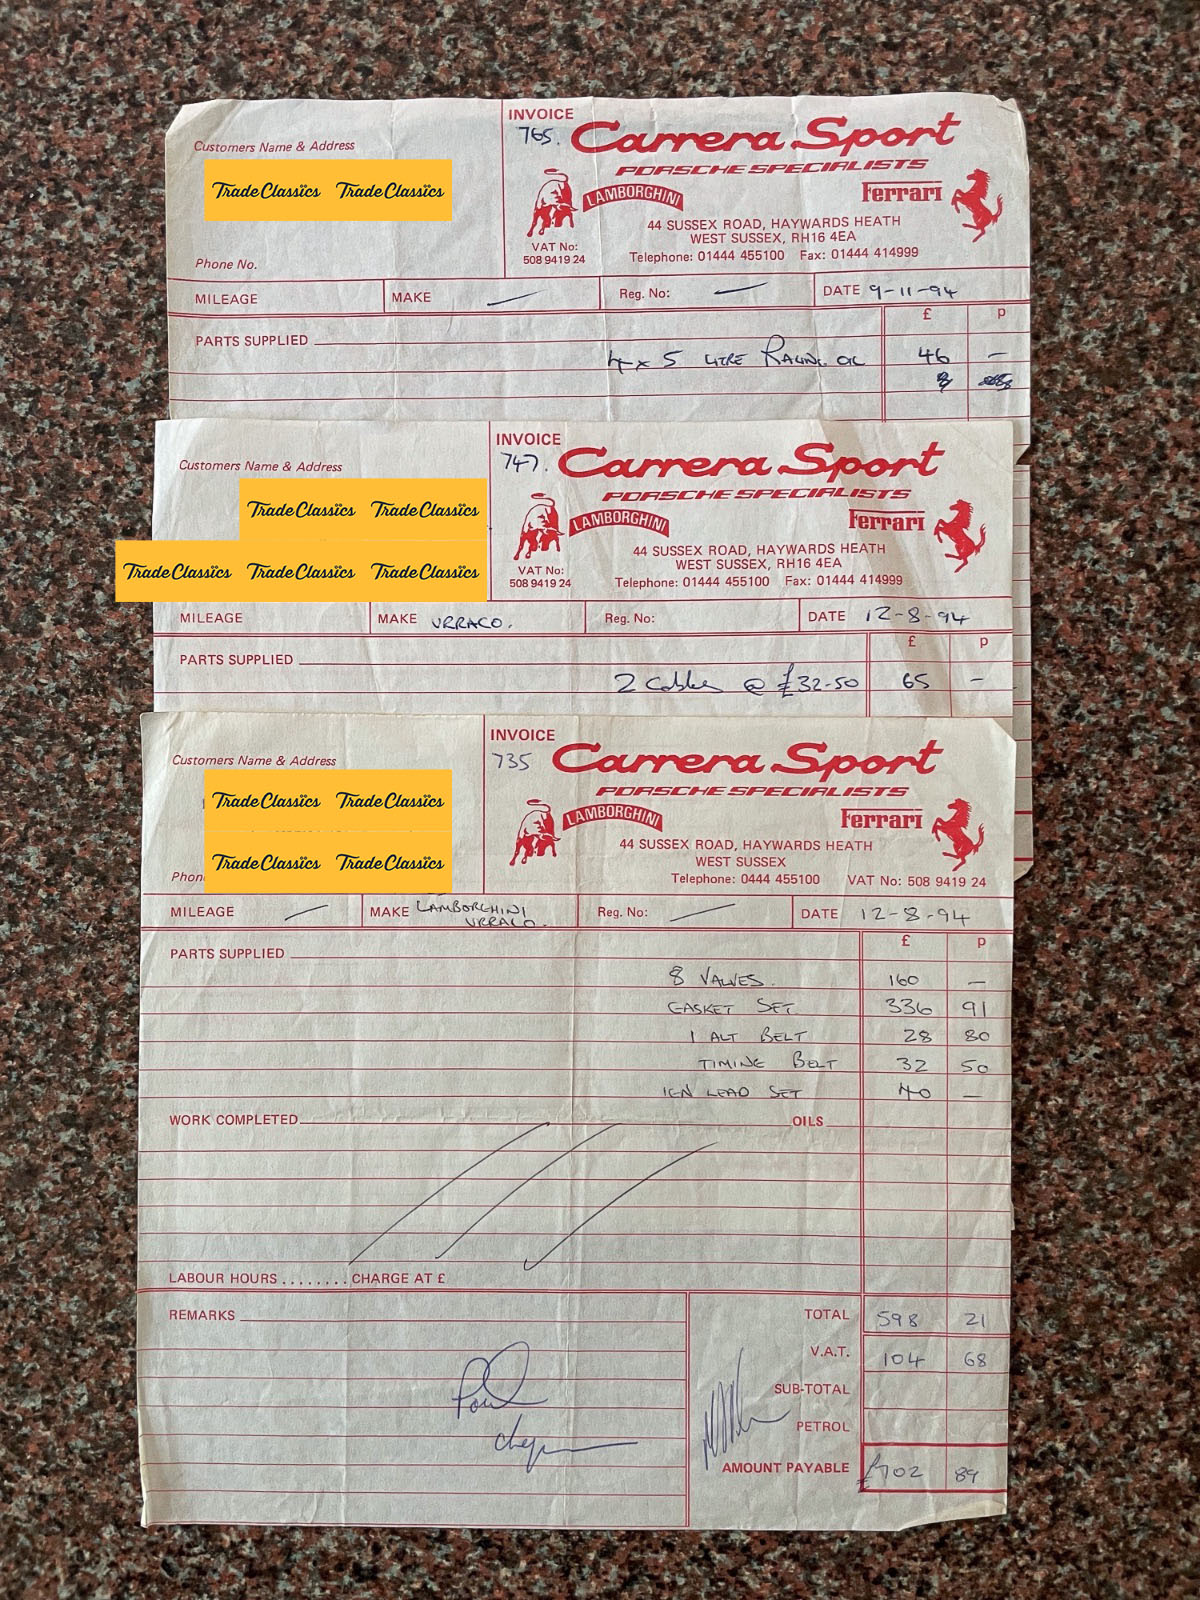 INVOICE
765.
Carrera Sport
PORSCHE SPECIALISTS
Customers Name & Address
TradeClassics TradeClassics
LAMBORGHINI
Ferrari
44 SUSSEX ROAD, HAYWARDS HEATH
WEST SUSSEX, RH16 4EA
VAT No:
508 9419 24
Telephone: 01444 455100 Fax: 01444 414999
Phone No.
MILEAGE MAKE — Reg. No: — DATE 9-11-94
£ p
PARTS SUPPLIED
4 x 5 LITRE RACING OIL 46 —
INVOICE
747.
Carrera Sport
PORSCHE SPECIALISTS
Customers Name & Address
TradeClassics TradeClassics
TradeClassics TradeClassics TradeClassics
LAMBORGHINI
Ferrari
44 SUSSEX ROAD, HAYWARDS HEATH
WEST SUSSEX, RH16 4EA
VAT No:
508 9419 24
Telephone: 01444 455100 Fax: 01444 414999
MILEAGE MAKE URRACO. Reg. No: DATE 12-8-94
£ p
PARTS SUPPLIED
2 Cables @ £32-50 65 —
INVOICE
735
Carrera Sport
PORSCHE SPECIALISTS
Customers Name & Address
TradeClassics TradeClassics
TradeClassics TradeClassics
LAMBORGHINI
Ferrari
44 SUSSEX ROAD, HAYWARDS HEATH
WEST SUSSEX
Telephone: 0444 455100 VAT No: 508 9419 24
Phon
MILEAGE — MAKE LAMBORGHINI URRACO. Reg. No: — DATE 12-8-94
£ p
PARTS SUPPLIED
8 VALVES. 160 —
GASKET SET 336 91
1 ALT BELT 28 80
TIMING BELT 32 50
IGN LEAD SET 40 —
WORK COMPLETED OILS
LABOUR HOURS ........ CHARGE AT £
REMARKS
TOTAL 598 21
V.A.T. 104 68
SUB-TOTAL
PETROL
AMOUNT PAYABLE £702 89
Paid
cheque